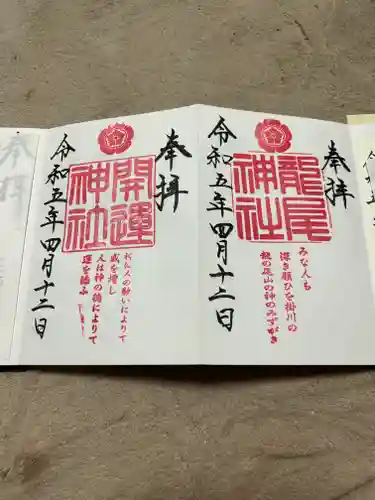 奉拝
龍尾神社
みな人も
深き願ひを掛川の
龍の尾山の神のみずがき
令和五年四月十二日
奉拝
開運神社
神は人の願いによりて
威を増し
人は神の徳によりて
運を添ふ
令和五年四月十二日
奉拝